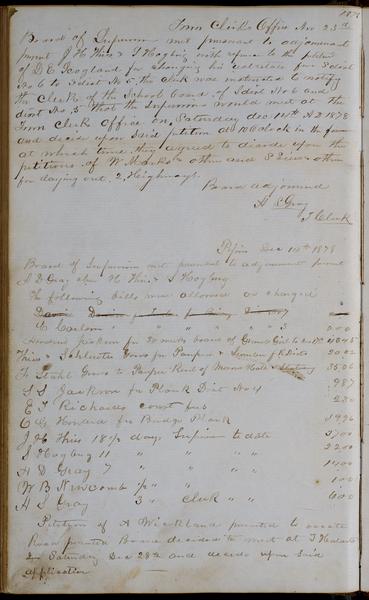 Town Clerk's Office Nov 25th 1878
Board of Supervisors met pursuant to adjournment
present J H Thies & S Hogberg with reference to the petition
of D E Hogland for changing his estate from District
No 6 to District No 5, the clerk was instructed to notify
the Clerk of the School board of Dist No 6 and
dist No 5 that the Supervisors would meet at the
Town Clerk Office on Saturday dec 14th AD 1878
and decide upon said petition at 10 Oclock in the fornoon
at which time they agreed to decide upon the
petitions of W Marks & others and others
for laying out 2 Highways
Board adjourned
A S Gray
T Clerk
Pepin Dec 14th 1878
Board of Supervisors met pursuant to adjournment present
A D Gray J H Thies & S Hogberg
The following bills were allowed as charged
C Carlson " " " " " 3 200
Jackson for board of Girl to 4045
Thies & Schluter Goods for Paupers & Lumber for Dists 2002
F Stahl Goods to Paupers Rent of House 3506
S S Jackson for Plank Dist No 4 987
E F Richards court fees 280
C G Howard for Bridge Plank 1996
J H Thies 18½ days Supervisor to date 3700
S Hogberg 11 " " " " 2200
A D Gray 7 " " " " 1400
W B Newcomb ½ " " 100
A S Gray 3 " Clerk " " 600
Petition of A Wicklund presented to vacate
Road presented Board decided to meet at
Saturday Dec 28th and decide upon said
application